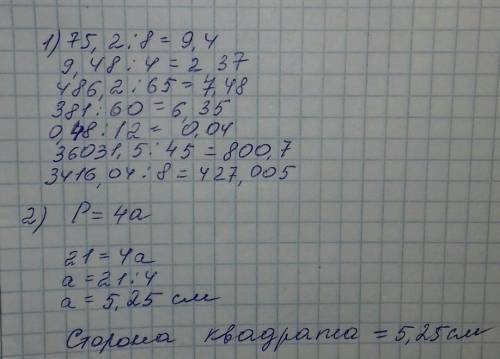 1) 75,2:8 = 9,4
9,48:4 = 2 37
486,2:65 = 7,48
381:60 = 6,35
0,48:12 = 0,04
36031,5:45 = 800,7
3416,04:8 = 427,005
2) P = 4a
21 = 4a
a = 21:4
a = 5,25 см
Сторона квадрата = 5,25см